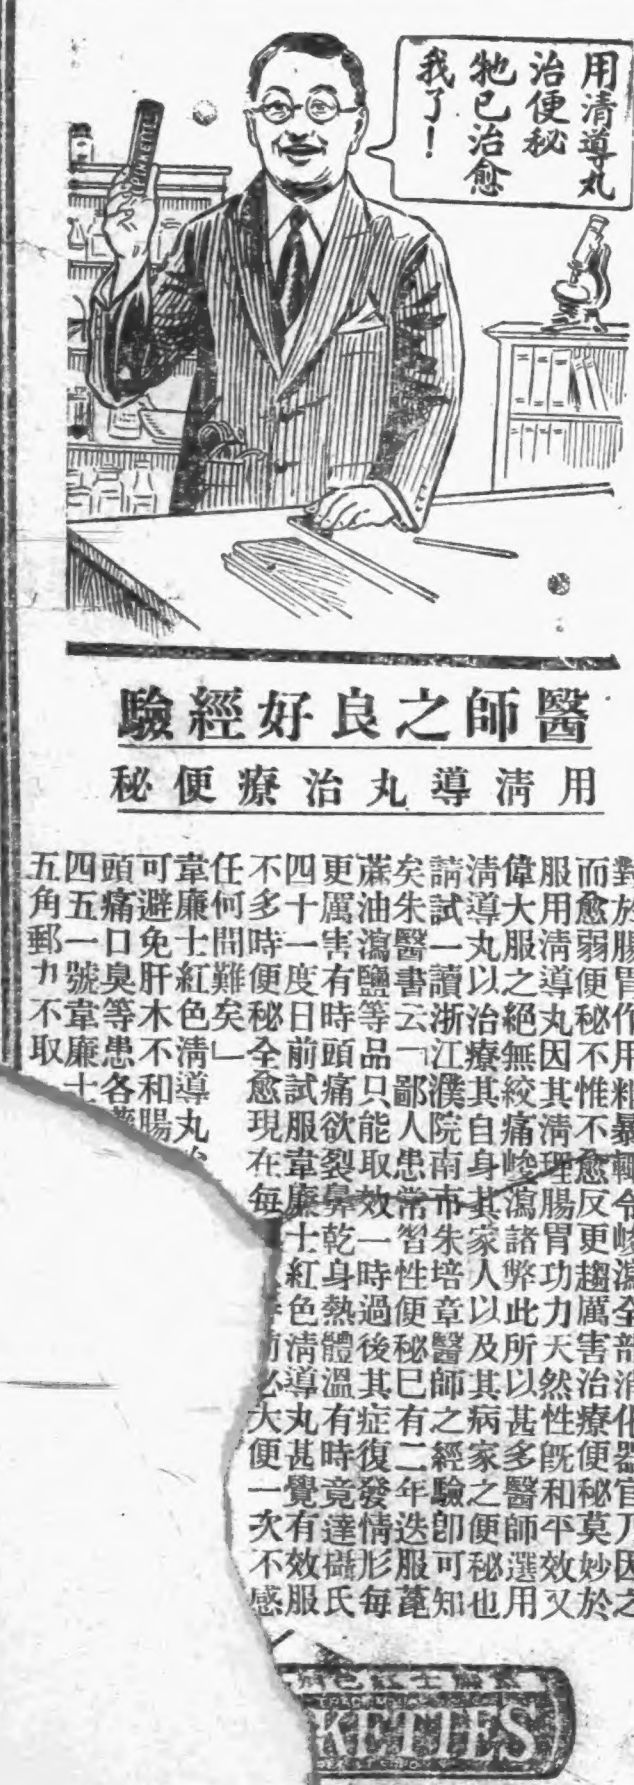 用清導丸
治便秘
牠已治愈
我了！
PINKETTES
醫師之良好經驗
用清導丸治療便秘
對於腸胃作用粗暴輒令峻瀉全部消化器官乃因之
而愈弱便秘不惟不愈反更趨厲害治療便秘莫妙於
服用清導丸因其清理腸胃功力天然性既和平效又
偉大服之絕無絞痛峻瀉諸弊此所以甚多醫師選用
清導丸以治療其自身其家人以及其病家之便秘也
請試一讀浙江濮院南市朱培章醫師之經驗卽可知
矣朱醫書云「鄙人患常習性便秘巳有二年迭服蓖
蔴油瀉鹽等品只能取效一時過後其症復發情形每
更厲害有時頭痛欲裂鼻乾身熱體溫有時竟達攝氏
四十一度日前試服韋廉士紅色清導丸甚覺有效服
不多時便秘全愈現在每
必大便一次不感
任何問難矣」
韋廉士紅色清導丸
可避免肝木不和腸
頭痛口臭等患各
四五一號韋廉士
五角郵力不取
色紅士廉韋
KETTES